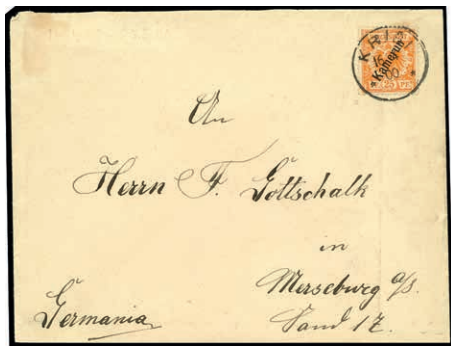 KRIBI
Kamerun
25 PF.
An
Herrn F. Gottschalk
in
Merseburg a/s.
Sand 17.
Germania